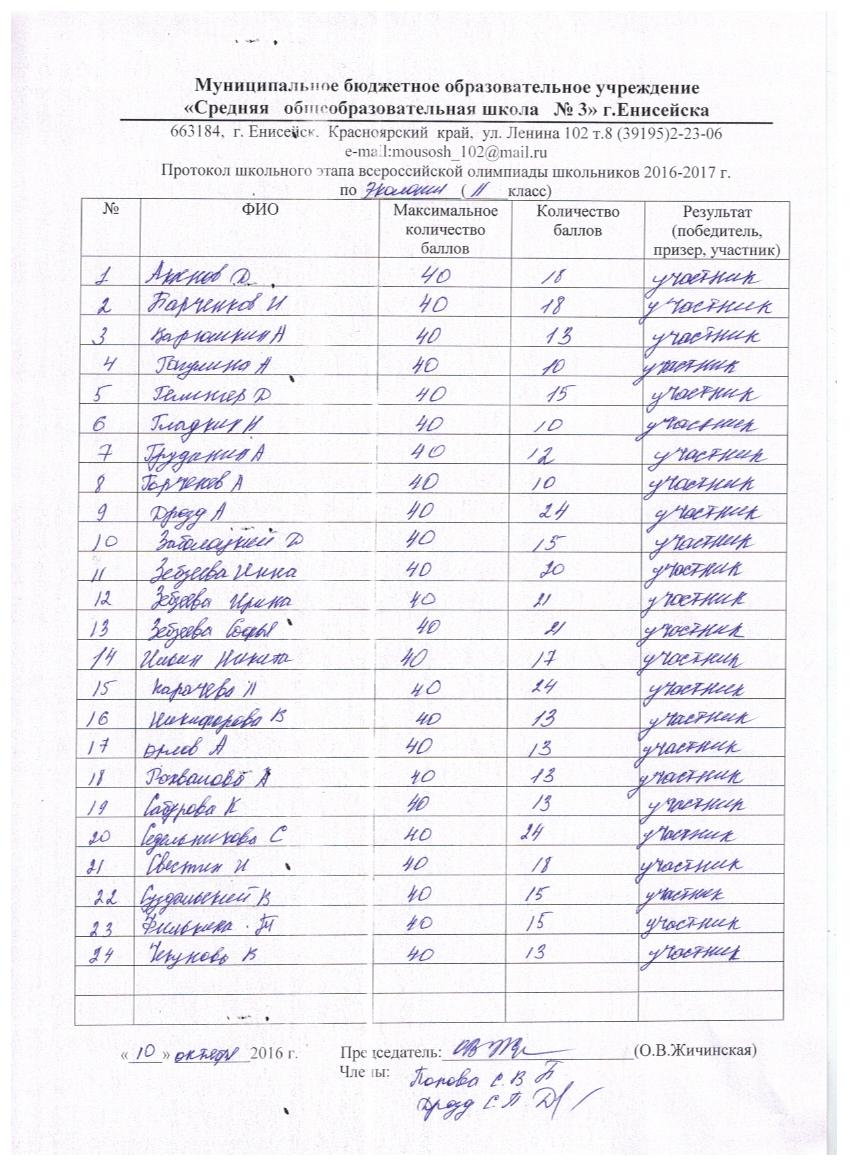 Муниципальное бюджетное образовательное учреждение
«Средняя общеобразовательная школа № 3» г.Енисейска
663184, г. Енисейск. Красноярский край, ул. Ленина 102 т.8 (39195)2-23-06
e-mail:mousosh_102@mail.ru
Протокол школьного этапа всероссийской олимпиады школьников 2016-2017 г.
по Экологии (11 класс)
№ ФИО Максимальное количество баллов Количество баллов Результат (победитель, призер, участник)
1 Д 40 18 участник
2 Парченков И 40 18 участник
3 Карюшкин А 40 13 участник
4 Гагулина А 40 10 участник
5 Гелингер Д 40 15 участник
6 Гладкин Н 40 10 участник
7 Груданин А 40 12 участник
8 А 40 10 участник
9 Дрозд А 40 24 участник
10 Заболоцкий Д 40 15 участник
11 Зебзеева Инна 40 20 участник
12 Зебзеева Ирина 40 21 участник
13 Зебзеева Софья 40 21 участник
14 Никита 40 17 участник
15 Карачева 40 24 участник
16 Никифорова В 40 13 участник
17 Орлов А 40 13 участник
18 А 40 13 участник
19 Сабурова К 40 13 участник
20 Седельникова С 40 24 участник
21 Свестин И 40 18 участник
22 Суздальский В 40 15 участник
23 Филькина Т 40 15 участник
24 Чекунова В 40 13 участник
« 10 » октября 2016 г. Председатель: (О.В.Жичинская)
Члены: Попова С.В
Дрозд С.П.